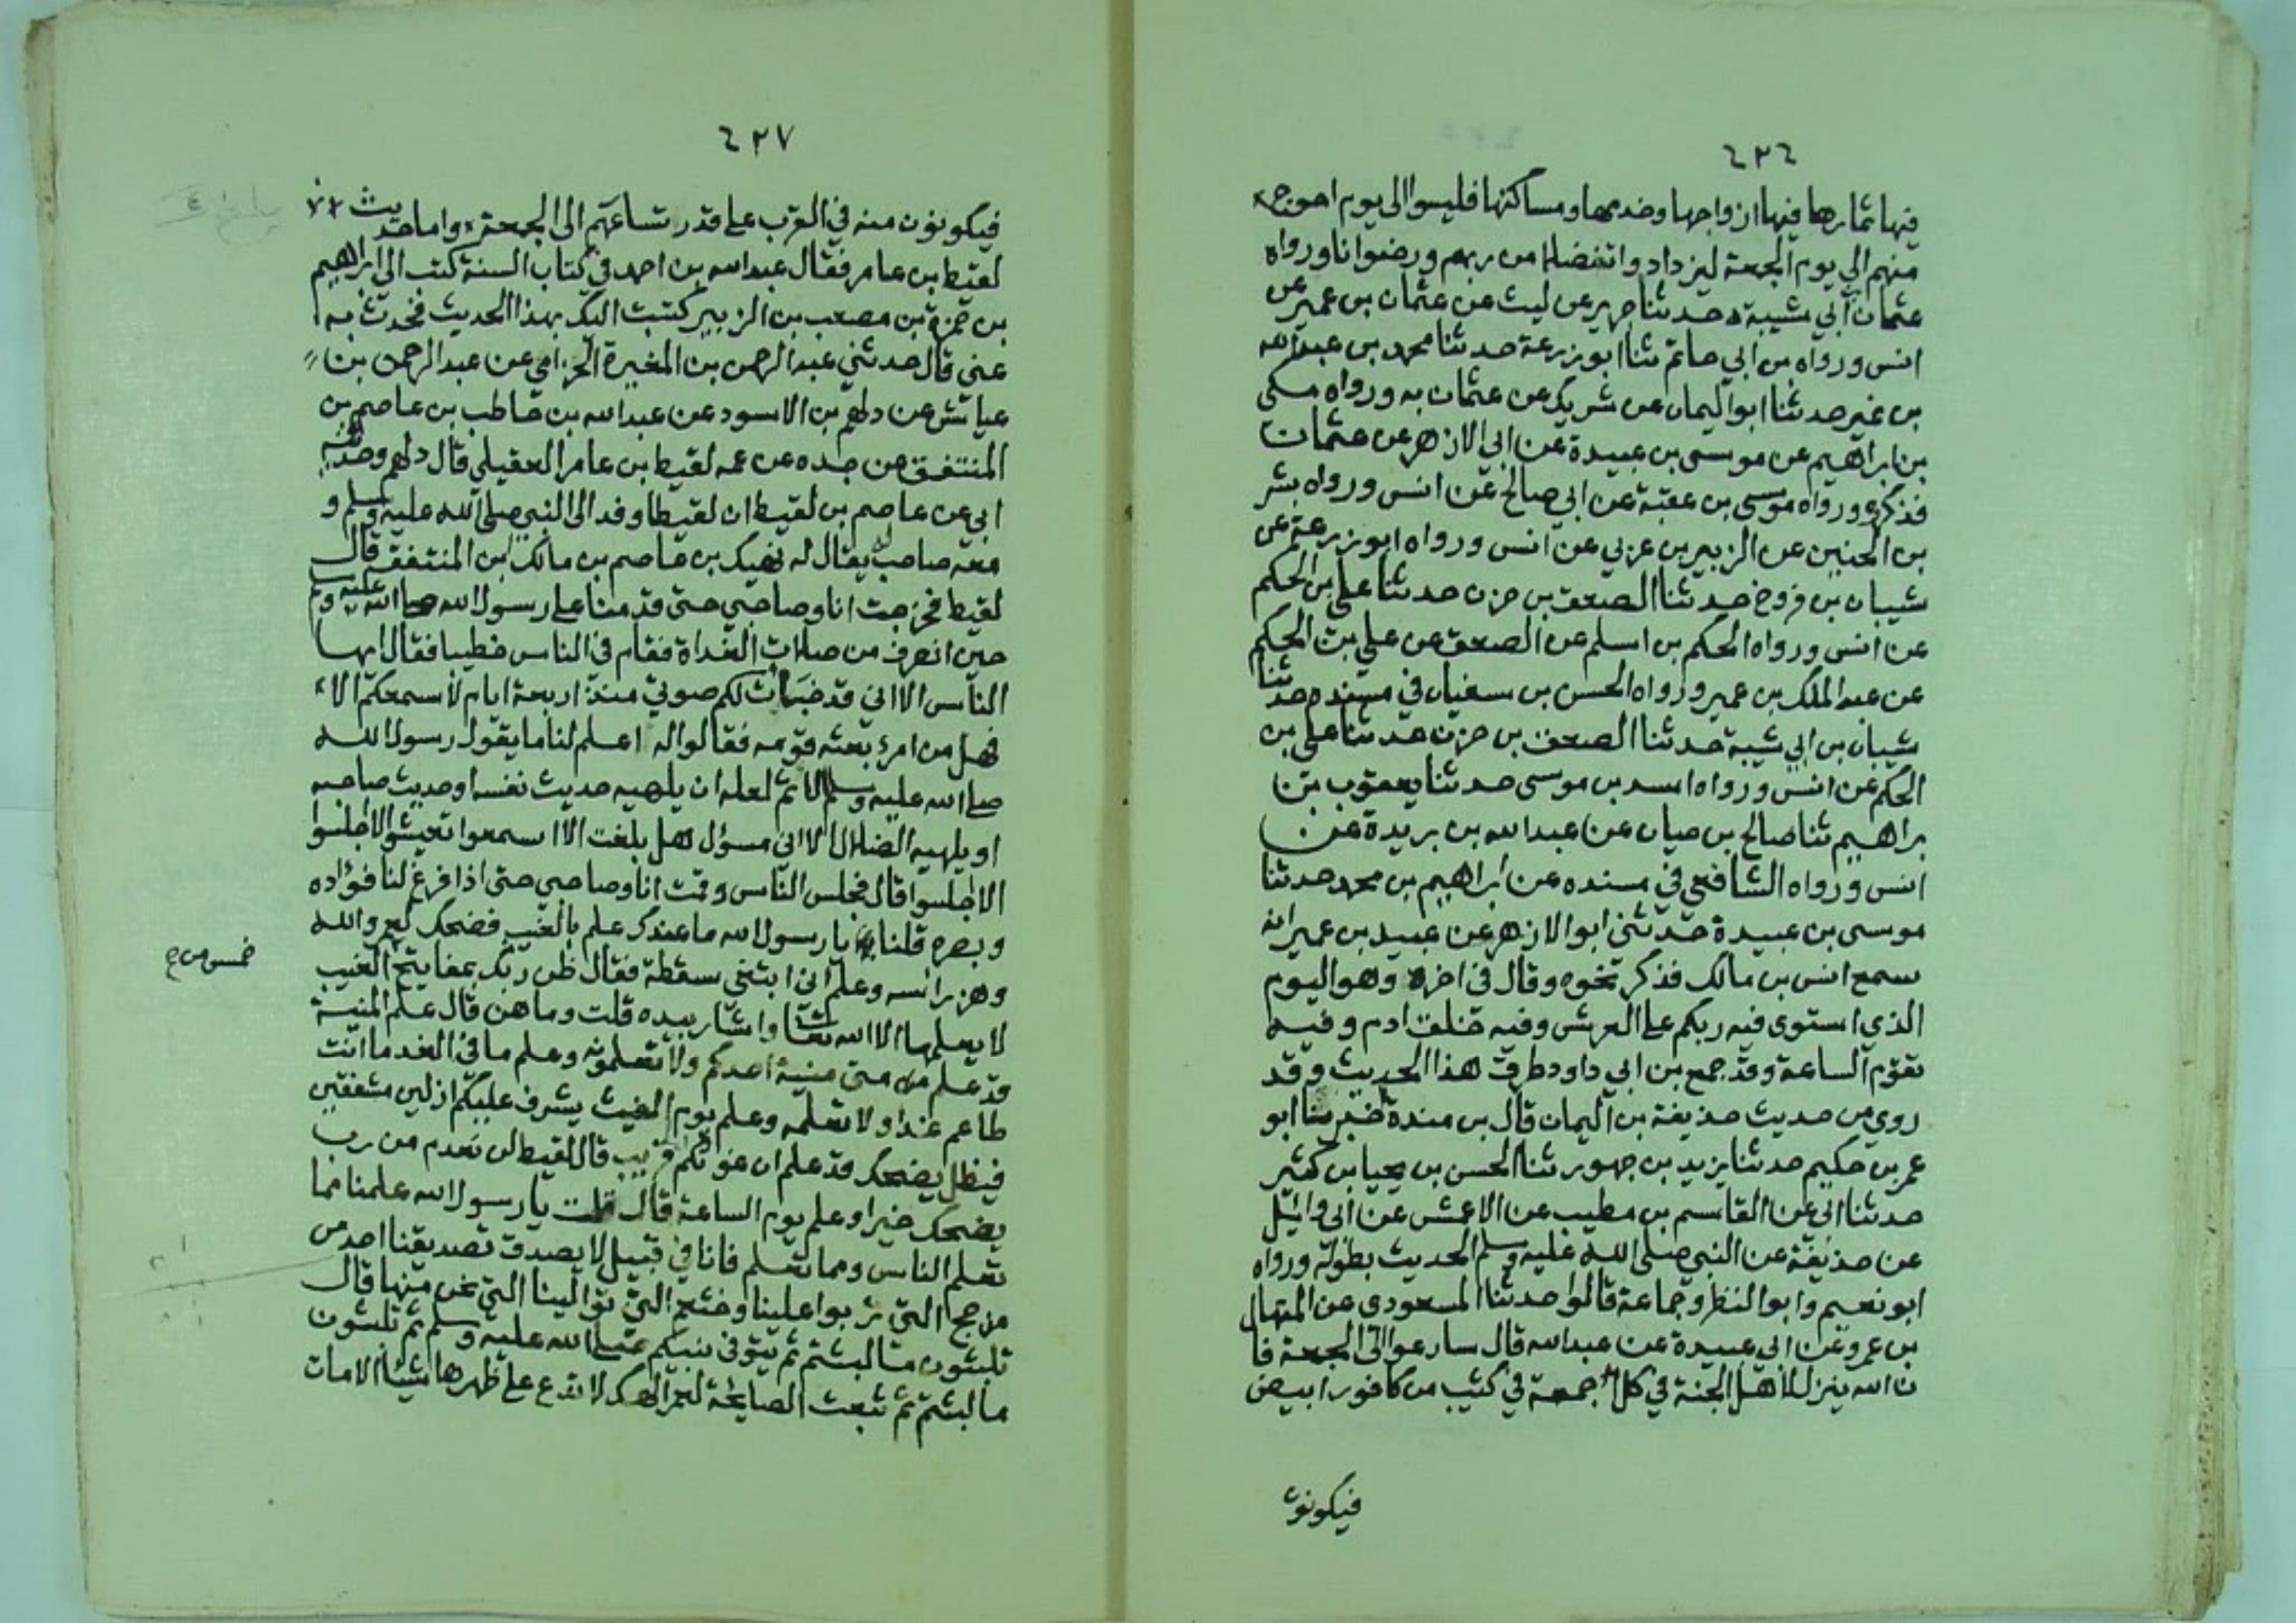 ٤٣٤
فيها ثمارها فيها ازواجها وخدمها ومساكنها فليسوا الى يوم احوج
منهم الي يوم الجمعة ليزدادوا تفضلا من ربهم ورضوانا ورواه
عثمان ابي شيبة حدثنا جرير عن ليث عن عثمان بن عمير عن
انس ورواه بن ابي حاتم ثنا ابو زرعة حدثنا محمد بن عبد الله
بن نمير حدثنا ابو اليمان عن شريك عن عثمان به ورواه مكي
بن ابراهيم عن موسى بن عبيدة عن ابي الازهر عن عثمان
فذكره ورواه موسى بن عقبة عن ابي صالح عن انس ورواه بشر
بن الحنين عن الزبير بن عربي عن انس ورواه ابو زرعة عن
شيبان بن فروخ حدثنا الصعق بن حزن حدثنا علي بن الحكم
عن انس ورواه الحكم بن اسلم عن الصعق عن علي بن الحكم
عن عبد الملك بن عمير ورواه الحسن بن سفيان في مسنده حدثنا
شيبان بن ابي شيبة حدثنا الصعق بن حزن حدثنا علي بن
الحكم عن انس ورواه اسد بن موسى حدثنا يعقوب بن
براهيم ثنا صالح بن حيان عن عبد الله بن بريدة عن
انس ورواه الشافعي في مسنده عن ابراهيم بن محمد حدثنا
موسى بن عبيدة حدثني ابو الازهر عن عبيد بن عمير انه
سمع انس بن مالك فذكر نحوه وقال في اخره وهو اليوم
الذي استوى فيه ربكم على العرش وفيه خلق ادم وفيه
تقوم الساعة وقد جمع بن ابي داود طرق هذا الحديث وقد
روي من حديث حذيفة بن اليمان قال بن مندة خبرنا ابو
عمر بن حكيم حدثنا يزيد بن جهور ثنا الحسن بن يحيا بن كثير
حدثنا ابي عن القاسم بن مطيب عن الاعمش عن ابي وائيل
عن حذيفة عن النبي صلى الله عليه وسلم الحديث بطوله ورواه
ابو نعيم وابو النظر وجماعة قالوا حدثنا المسعودي عن المنهال
بن عمرو عن ابي عبيدة عن عبد الله قال سارعوا الى الجمعة فا
ن الله ينزل لاهل الجنة في كل جمعة في كثيب من كافور ابيض
فيكونون
٤٣٧
فيكونون منه في القرب على قدر تساعهم الى الجمعة واما حديث
لقيط بن عامر فقال عبد الله بن احمد في كتاب السنة كتب الي ابراهيم
بن حمزة بن مصعب بن الزبير كتبت اليك بهذا الحديث فحدث به
عني قال حدثني عبد الرحمن بن المغيرة الحزامي عن عبد الرحمن بن
عياش عن دلهم بن الاسود عن عبد الله بن حاطب بن عاصم بن
المنتفق عن جده عن عمه لقيط بن عامر العقيلي قال دلهم وحدثنيه
ابي عن عاصم بن لقيط ان لقيطا وفد الى النبي صلى الله عليه وسلم و
معه صاحب يقال له نهيك بن عاصم بن مالك بن المنتفق قال
لقيط فخرجت انا وصاحبي حتى قدمنا على رسول الله صلى الله عليه وسلم
حين انصرف من صلات الغداة فقام في الناس خطيبا فقال ايها
الناس الا اني قد خبأت لكم صوتي منذ اربعة ايام لأ سمعكم الا
فهل من امرئ بعثه قومه فقالوا له اعلم لنا ما يقول رسول الله
صلى الله عليه وسلم الا ثم لعله ان يلهيه حديث نفسه او حديث صاحبه
او يلهيه الضلال الا اني مسؤل هل بلغت الا اسمعوا تعيشوا الا اجلسوا
الا اجلسوا قال فجلس الناس وقمت انا وصاحبي حتى اذا فرغ لنا فؤاده
وبصره قلنا يا رسول الله ما عندك علم بالغيب فضحك لعمر والله
وهز رأسه وعلم اني ابتغي سقطة فقال ظن ربك بمفاتيح الغيب
لا يعلمها الا الله تعا واشار بيده قلت وما هن قال علم المنية
قد علم من متى منية احدكم ولا تعلمونه وعلم ما في الغد ما انت
طاعم غدا ولا تعلمه وعلم يوم الغيث يشرف عليكم ازلين مشفقين
فيظل يضحك قد علم ان غوثكم قريب قال لقيط لن نعدم من رب
يضحك خيرا وعلم يوم الساعة قال قلت يا رسول الله علمنا مما
تعلم الناس ومما تعلم فانا في قبيل لا يصدق تصديقنا احد من
مذحج التي تربوا علينا وخثعم التي توالينا التي نحن منها قال
تلبثون ما لبثتم ثم يتوفى نبيكم صلى الله عليه وسلم ثم تلبثون
ما لبثتم ثم تبعث الصايحة لعمر الهك لا تدع على ظهرها شيئا الا مات
خمس من ح